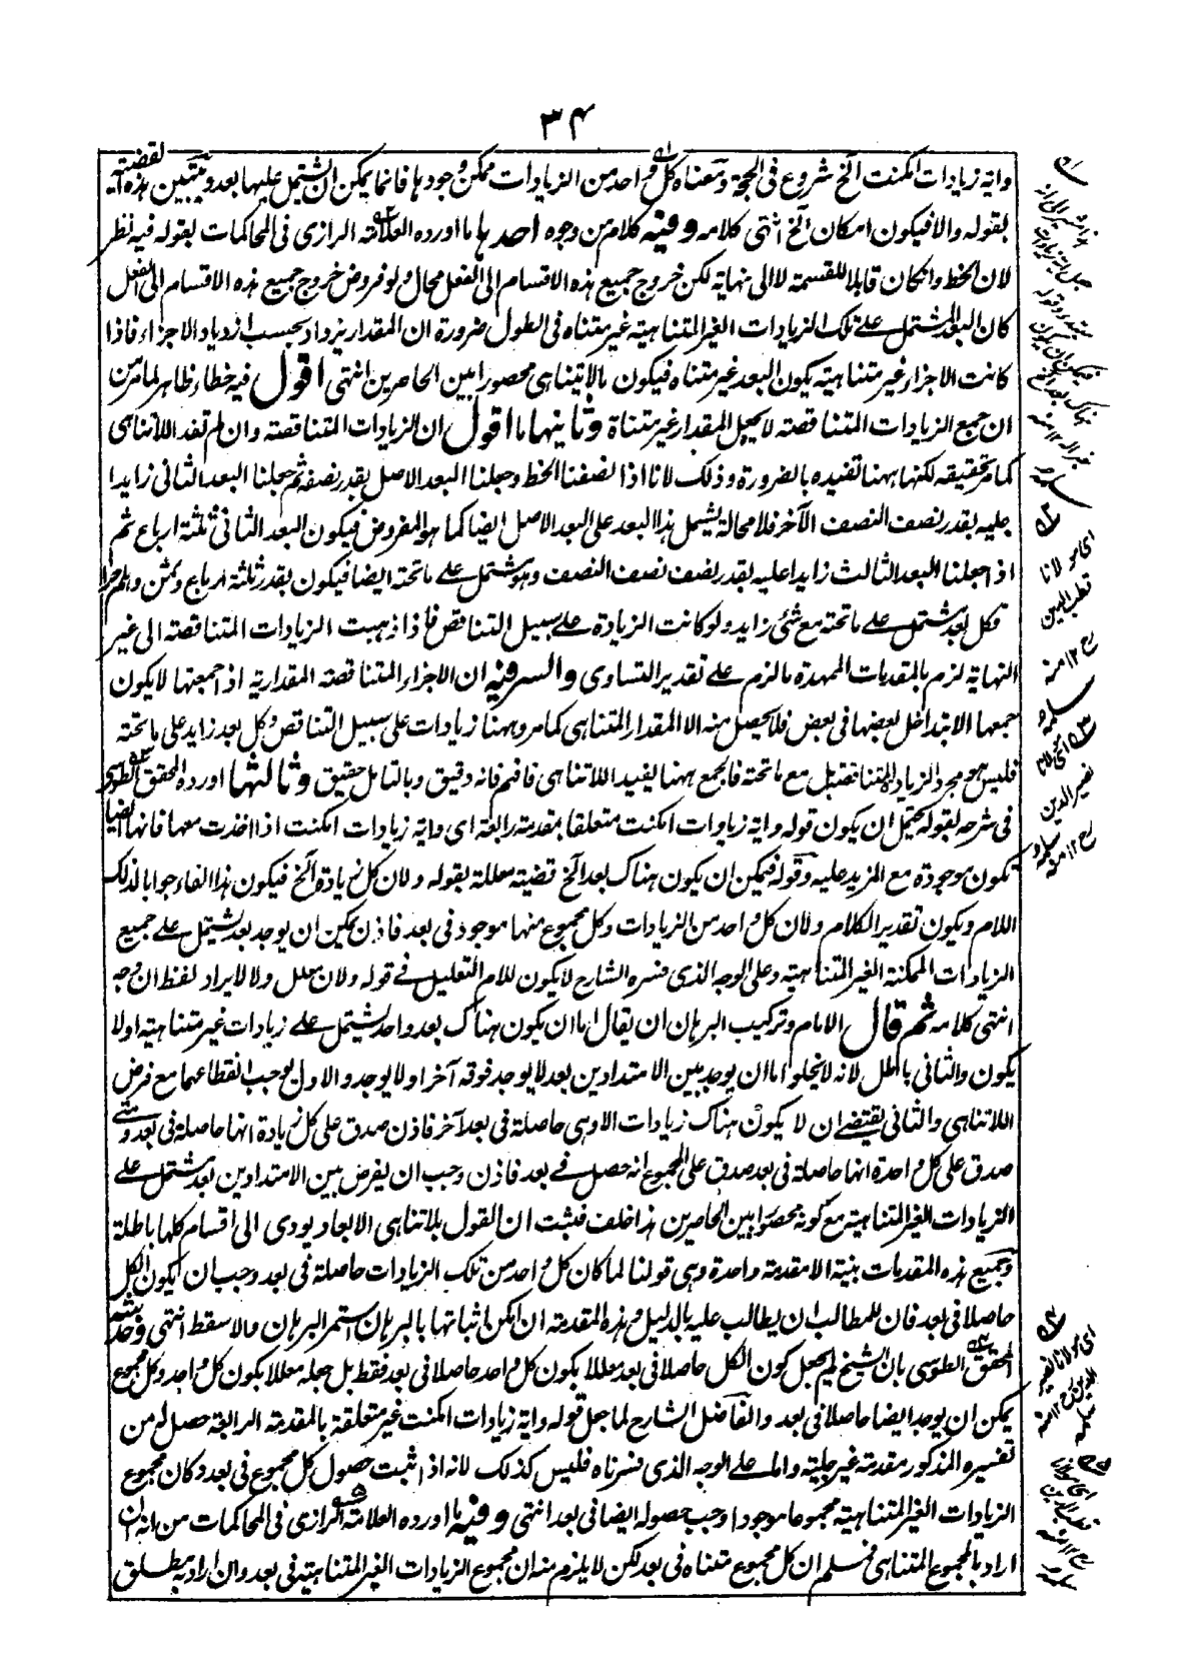 ٣٤
واية زيادات امكنت الخ شروع فى الحجة ومعناه كل واحد من الزيادات ممكن وجودها فانما يمكن ان يشتمل عليها بعد ويتبين هذه القضية
بقوله والا فيكون امكان الخ انتهى كلامه وفيه كلام من وجوه احدها ما اورده العلامة الرازى فى المحاكمات بقوله فيه نظر
لان الخط وان كان قابلا للقسمة لا الى نهاية لكن خروج جميع هذه الاقسام الى الفعل محال ولو فرض خروج جميع هذه الاقسام الى الفعل
كان البعد المشتمل على تلك الزيادات الغير المتناهية غير متناه فى الطول ضرورة ان المقدار يزداد بحسب ازدياد الاجزاء فاذا
كانت الاجزاء غير متناهية يكون البعد غير متناه فيكون ما لا يتناهى محصورا بين الحاصرين انتهى اقول فيه خطاء ظاهر لما مر من
ان جميع الزيادات المتناقصة لا يجعل المقدار غير متناه وثانيها ما اقول ان الزيادات المتناقصة وان لم تفد اللاتناهى
كما مر تحقيقه لكنها ههنا تفيده بالضرورة وذلك لانا اذا نصفنا الخط وجعلنا البعد الاصل بقدر نصفه ثم جعلنا البعد الثانى زايدا
عليه بقدر نصف النصف الآخر فلا محالة يشمل هذا البعد على البعد الاصل ايضا كما هو المفروض فيكون البعد الثانى ثلثة ارباع ثم
اذا جعلنا البعد الثالث زايدا عليه بقدر نصف نصف النصف وهو مشتمل على ما تحته ايضا فيكون بقدر ثلثة ارباع وثمن وهلم جرا
فكل بعد مشتمل على ما تحته مع شئ زايد ولو كانت الزيادة على سبيل التناقص فاذا ذهبت الزيادات المتناقصة الى غير
النهاية لزم بالمقدمات الممهدة ما لزم على تقدير التساوى والسر فيه ان الاجزاء المتناقصة المقدارية اذا جمعتها لا يكون
جمعها الا بتداخل بعضها فى بعض فلا يحصل منه الا المقدار المتناهى كما مر وههنا زيادات على سبيل التناقص وكل بعد زايد على ما تحته
فليس هو مجرد الزيادة المتناقصة بل مع ما تحته فالجمع ههنا يفيد اللاتناهى فافهم فانه دقيق وبالتامل حقيق وثالثها ما اورده المحقق الطوسى
فى شرحه بقوله يحتمل ان يكون قوله واية زيادات امكنت متعلقا بمقدمة رابعة اى واية زيادات امكنت اذا اخذت معها فانها ايضا
تكون موجودة مع المزيد عليه وقوله فيمكن ان يكون هناك بعد الخ قضية معللة بقوله ولان كل زيادة الخ فيكون هذا الفاء جوابا لذلك
اللام ويكون تقدير الكلام ولان كل واحد من الزيادات وكل مجموع منها موجود فى بعد فاذن يمكن ان يوجد بعد يشتمل على جميع
الزيادات الممكنة الغير المتناهية وعلى الوجه الذى فسره الشارح لا يكون للام التعليل فى قوله ولان معلل ولا لايراد لفظ ان وجه
انتهى كلامه ثم قال الامام وتركيب البرهان ان يقال اما ان يكون هناك بعد واحد يشتمل على زيادات غير متناهية او لا
يكون والثانى باطل لانه لا يخلو اما ان يوجد بين الامتدادين بعد لا يوجد فوقه آخر او لا يوجد والاول يوجب انقطاعهما مع فرض
اللاتناهى والثانى يقتضى ان لا يكون هناك زيادات الا وهى حاصلة فى بعد آخر فاذن صدق على كل زيادة انها حاصلة فى بعد ومتى
صدق على كل واحدة انها حاصلة فى بعد صدق على المجموع انه حصل فى بعد فاذن وجب ان يفرض بين الامتدادين بعد مشتمل على
الزيادات الغير المتناهية مع كونه محصورا بين الحاصرين هذا خلف فثبت ان القول بلا تناهى الابعاد يودى الى اقسام كلها باطلة
وجميع هذه المقدمات بنية الا مقدمة واحدة وهى قولنا لما كان كل واحد من تلك الزيادات حاصلة فى بعد وجب ان يكون الكل
حاصلا فى بعد فان للمطالب ان يطالب عليه بالدليل وهذه المقدمة ان امكن اثباتها بالبرهان استمر البرهان والا سقط انتهى وخدشه
المحقق الطوسى بان الشيخ لم يجعل كون الكل حاصلا فى بعد معللا بكون كل واحد حاصلا فى بعد فقط بل جعله معللا بكون كل واحد وكل مجموع
يمكن ان يوجد ايضا حاصلا فى بعد والفاضل الشارح لما جعل قوله واية زيادات امكنت غير متعلقة بالمقدمة الرابعة حصل له من
تفسيره المذكور مقدمة غير جلية واما على الوجه الذى فسرناه فليس كذلك لانه اذا ثبت حصول كل مجموع فى بعد وكان مجموع
الزيادات الغير المتناهية مجموعا موجودا وجب حصوله ايضا فى بعد انتهى وفيه ما اورده العلامة الرازى فى المحاكمات من انه ان
اراد بالمجموع المتناهى فمسلم ان كل مجموع متناه فى بعد لكن لا يلزم منه ان مجموع الزيادات الغير المتناهية فى بعد وان اراد به مطلق
اى مولانا
قطب الدين
رح ١٢ منه
نصير الدين
رح ١٢ منه
اى مولانا نصير
الدين رح ١٢ منه